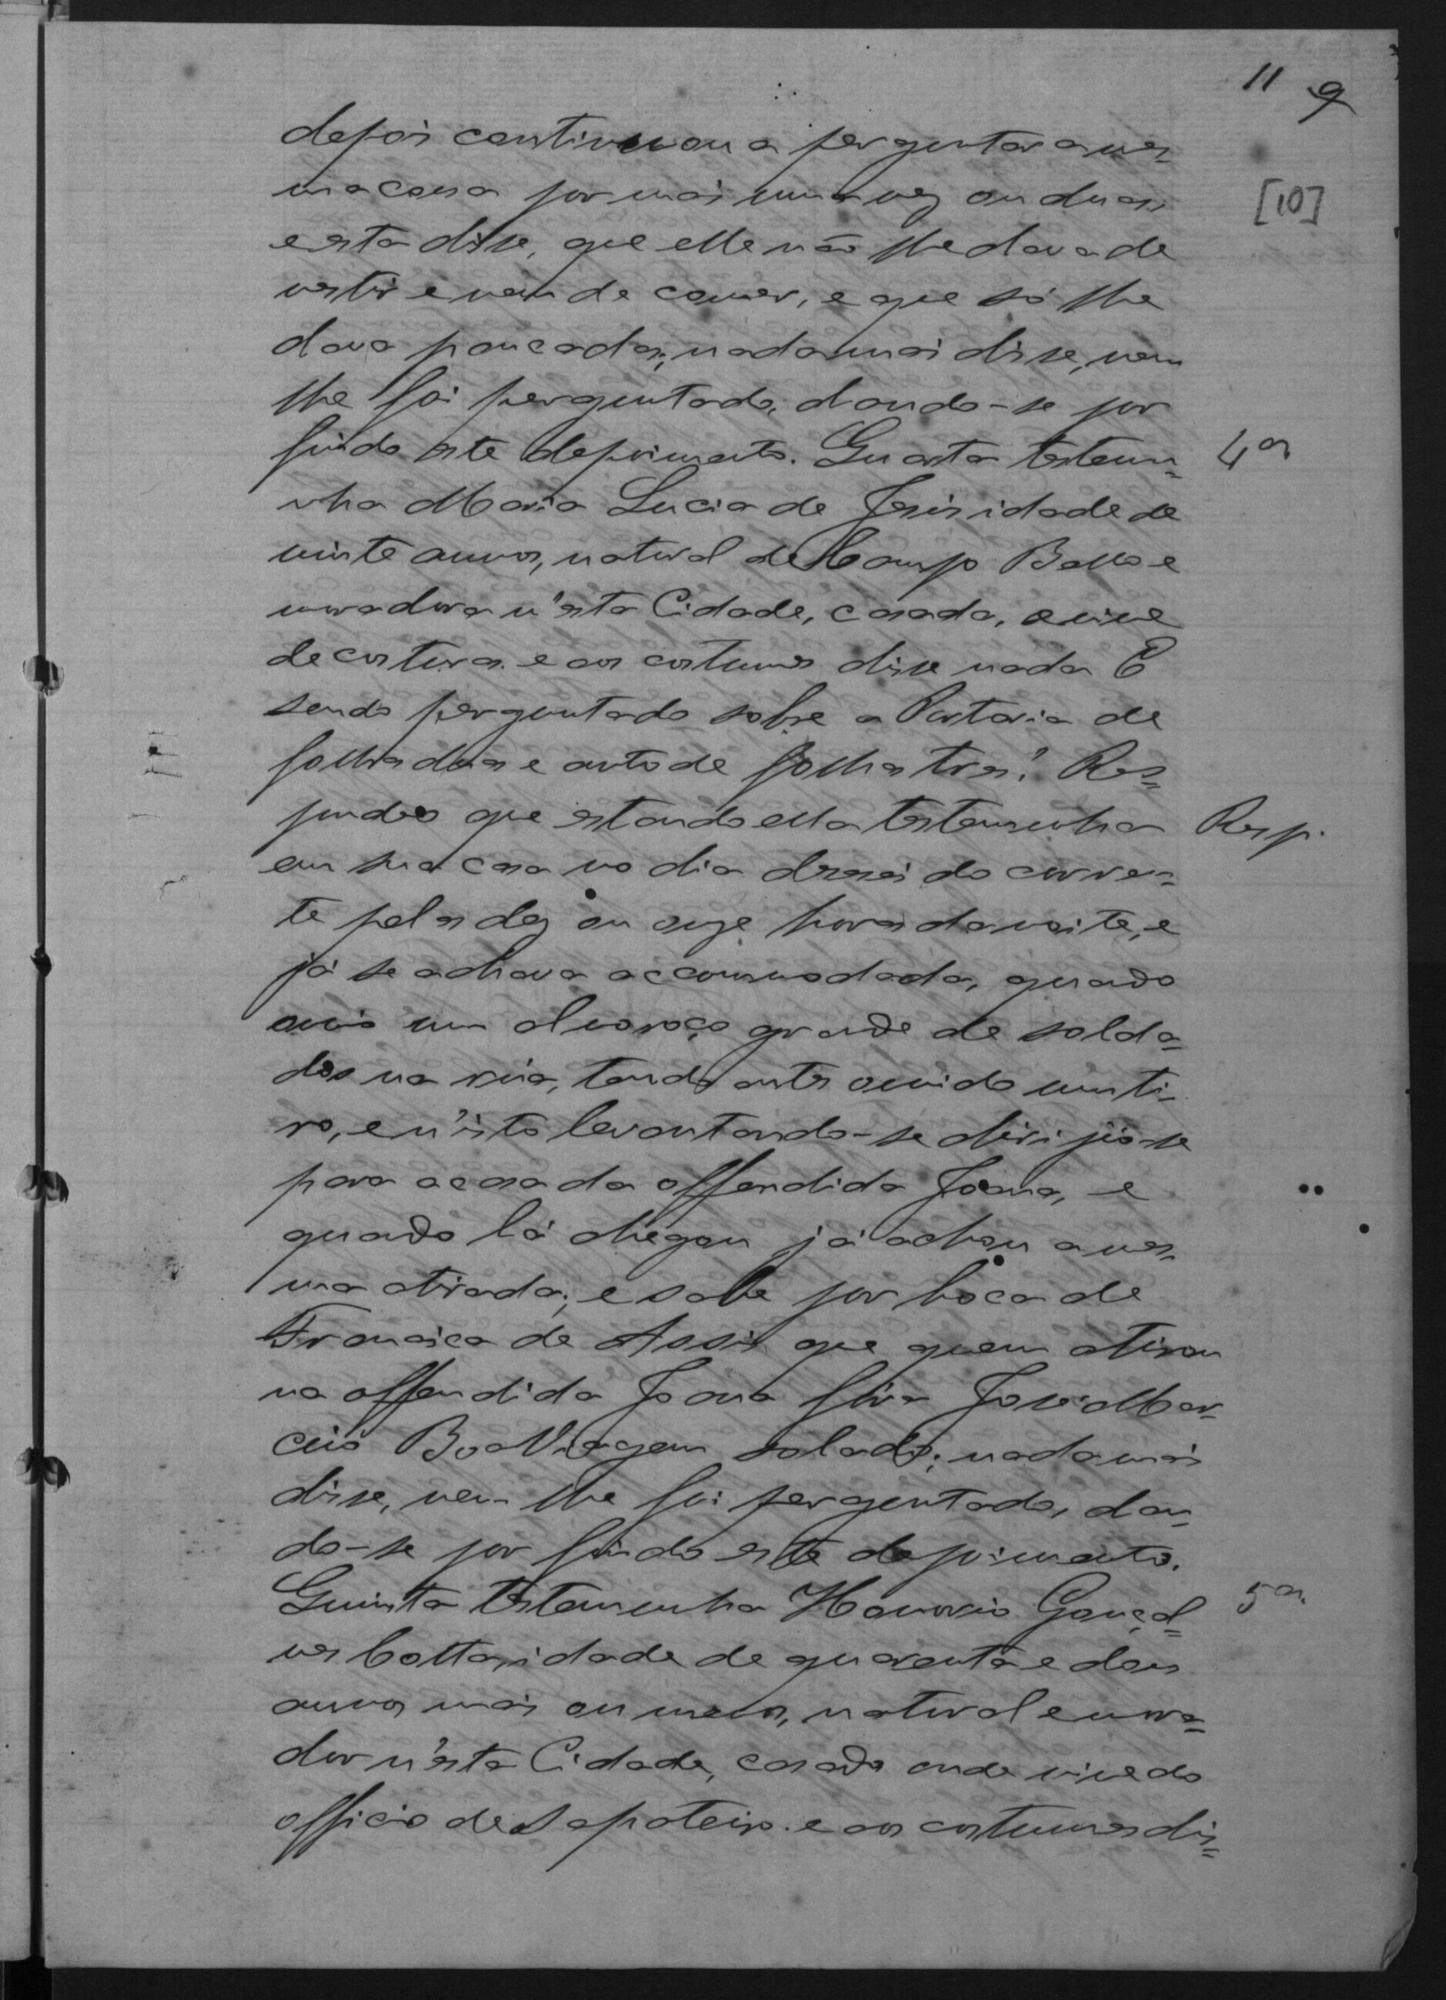 11 9
[10]
depois continuou a perguntar a mes-
ma cousa por mais uma vez ou duas
e esta disse, que elle não lhe dava de
vestir e nem de comer, e que só lhe
dava pancadas; nada mais disse, nem
lhe foi perguntado, dando-se por
findo este depoimento. Quarta testemu=
4a
nha Maria Lucia de Jesus idade de
vinte annos, natural de Campo Bello e
moradora n'esta Cidade, casada, e vive
de costuras. e aos costumes disse nada E
sendo perguntado sobre a Portaria de
folhas duas e auto de folhas tres? Res=
pondeo que estando ella testemunha
Resp.
em sua casa no dia deseseis do corren=
te pelas dez ou onze horas da noite, e
já se achava accommodada, quando
ouvio um alvoroço grande de solda=
dos na rua, tendo antes ouvido um ti-
ro, e n'isto levantando-se dirijio-se
para a casa da offendida Joana, e
quando lá chegou já achou a mes-
ma atirada; e sabe por boca de
Francisca de Assis que quem atirou
na offendida Joana fôra José Mar-
cio Boa Viagem soldado; nada mais
disse, nem lhe foi perguntado, dan-
do-se por findo este depoimento.
Quinta testemunha Honorio Gonçal=
5a.
ves Cotta, idade de quarenta e dous
annos mais ou menos, natural e mora=
dor n'esta Cidade, casado onde vive do
officio de Sapateiro. e aos costumes dis=